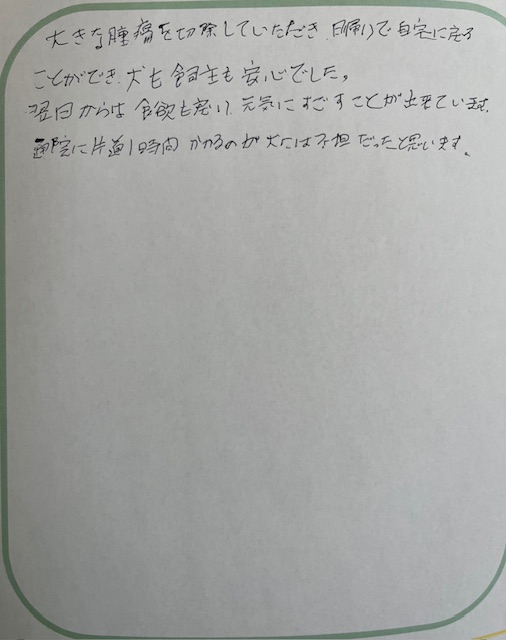 大きな腫瘍を切除していただき、日帰りで自宅に戻る
ことができ、犬も飼主も安心でした。
翌日からは食欲も旺い、元気にすごすことが出来ています。
通院に片道1時間かかるのが犬には不担だったと思います。